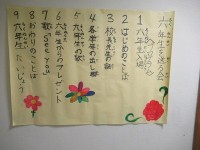 六年生を送る会
1 六年生入場
2 はじめのことば
3 校長先生のお話
4 各学年の出し物
5 六年生の歌
6 六年生からのプレゼント
7 歌 See You
8 おわりのことば
9 六年生 たいじょう